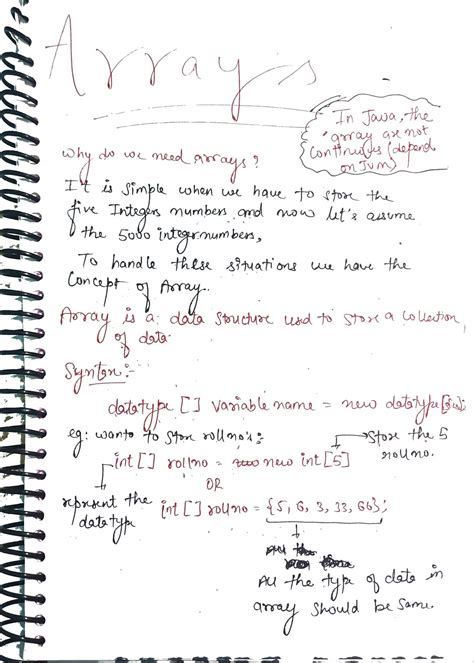 Arrays
In Java, the
array are not
Continuous (depend
on JVM)
Why do we need arrays?
It is simple when we have to store the
five Integers numbers and now let's assume
the 5000 integer numbers,
To handle these situations we have the
Concept of Array.
Array is a: data structure used to store a collection
of data.
Syntax:-
datatype [] variable name = new datatype[size];
eg: wants to store rollno's:-
Store the 5
rollno.
int [] rollno = new int [5]
OR
represent the
datatype
int [] rollno = {5, 6, 3, 33, 66};
All the type of data in
array should be same.